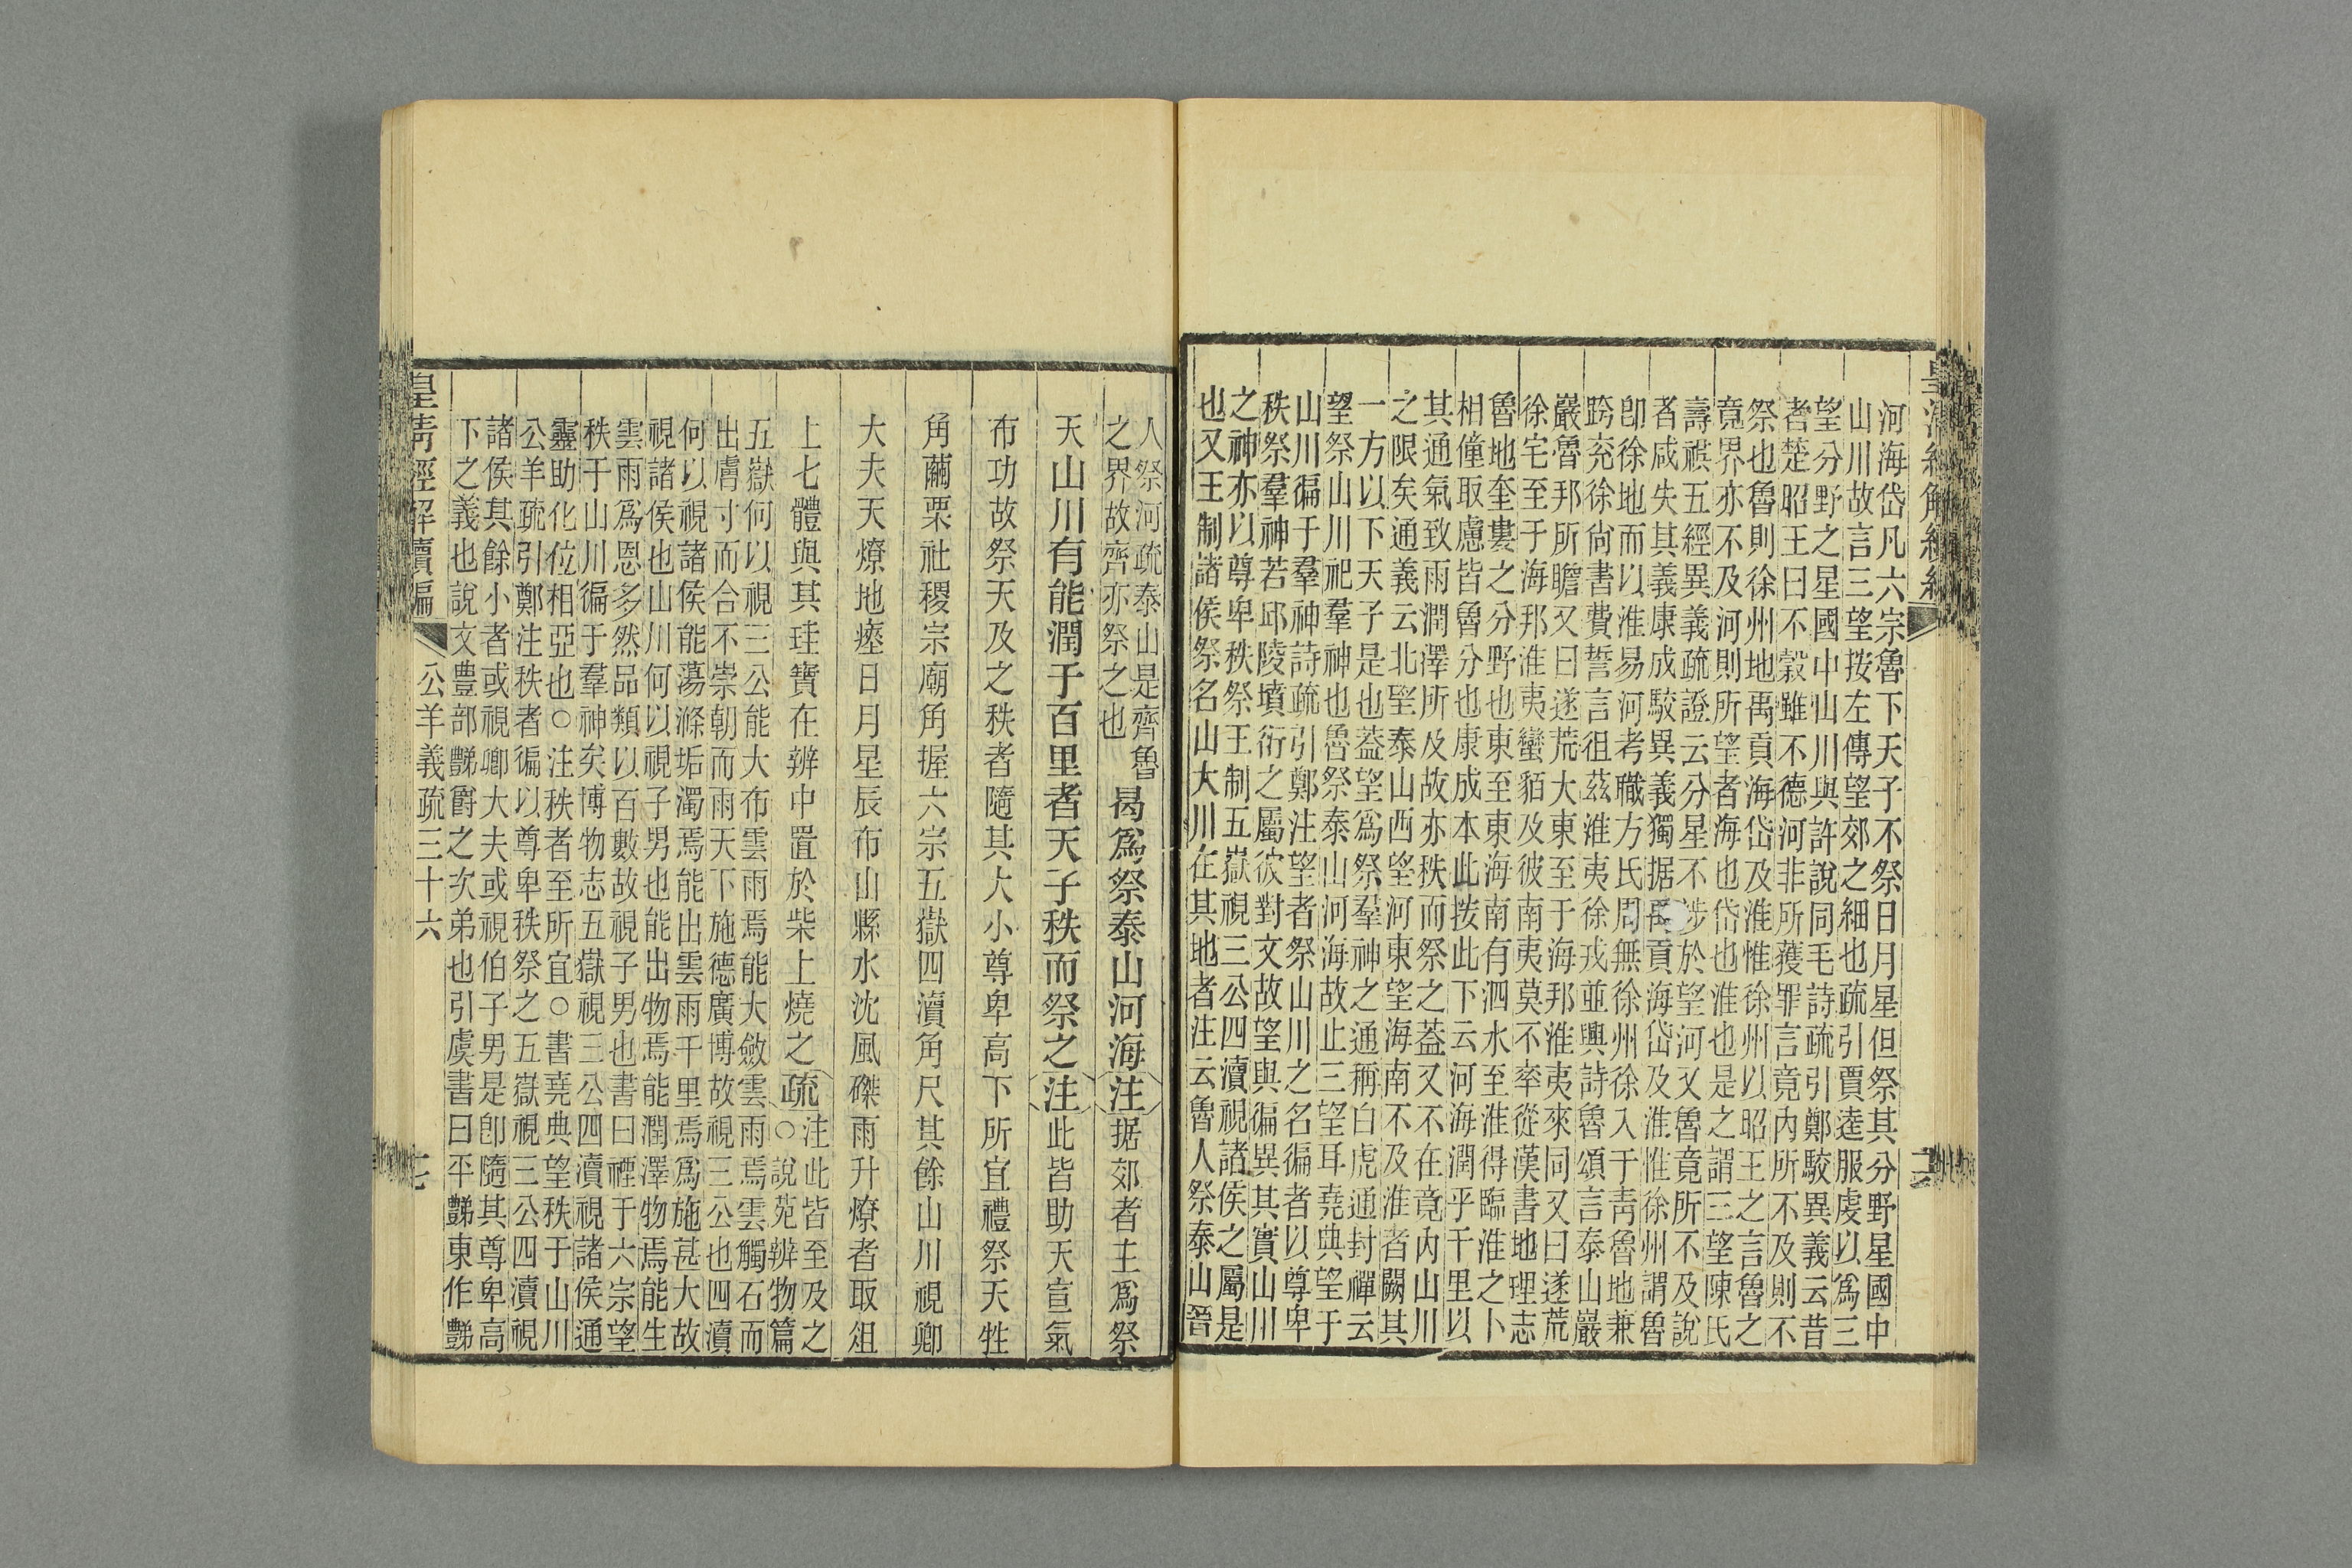 河海岱凡六宗魯下天子不祭日月星但祭其分野星國中
山川故言三望按左傳望郊之細也疏引賈逵服虔以爲三
望分野之星國中山川與許說同毛詩疏引鄭駮異義云昔
者楚昭王曰不穀雖不德河非所獲罪言竟內所不及則不
祭也魯則徐州地禹貢海岱及淮惟徐州以昭王之言魯之
竟界亦不及河則所望者海也岱也淮也是之謂三望陳氏
壽祺五經異義疏證云分星不涉於望河又魯竟所不及說
者咸失其義康成駮異義獨据禹貢海岱及淮惟徐州謂魯
卽徐地而以淮易河考職方氏周無徐州徐入于靑魯地兼
跨兗徐尙書費誓言徂茲淮夷徐戎並興詩魯頌言泰山巖
巖魯邦所瞻又曰遂荒大東至于海邦淮夷來同又曰遂荒
徐宅至于海邦淮夷蠻貊及彼南夷莫不率從漢書地理志
魯地奎婁之分野也東至東海南有泗水至淮得臨淮之卜
相僮取慮皆魯分也康成本此按此下云河海潤乎千里以
其通氣致雨潤澤所及故亦秩而祭之蓋又不在竟內山川
之限矣通義云北望泰山西望河東望海南不及淮者闕其
一方以下天子是也蓋望爲祭羣神之通稱白虎通封禪云
望祭山川祀羣神也魯祭泰山河海故止三望耳堯典望于
山川徧于羣神詩疏引鄭注望者祭山川之名徧者以尊卑
秩祭羣神若邱陵墳衍之屬彼對文故望與徧異其實山川
之神亦以尊卑秩祭王制五嶽視三公四瀆視諸侯之屬是
也又王制諸侯祭名山大川在其地者注云魯人祭泰山晉
人祭河疏泰山是齊魯
之界故齊亦祭之也
曷爲祭泰山河海注据郊者主爲祭
天山川有能潤于百里者天子秩而祭之注此皆助天宣氣
布功故祭天及之秩者隨其大小尊卑高下所宜禮祭天牲
角繭栗社稷宗廟角握六宗五嶽四瀆角尺其餘山川視卿
大夫天燎地瘞日月星辰布山縣水沈風磔雨升燎者取俎
上七體與其珪寶在辨中置於柴上燒之疏
注此皆至及之
○說苑辨物篇
五嶽何以視三公能大布雲雨焉能大斂雲雨焉雲觸石而
出膚寸而合不崇朝而雨天下施德廣博故視三公也四瀆
何以視諸侯能蕩滌垢濁焉能出雲雨千里焉爲施甚大故
視諸侯也山川何以視子男也能出物焉能潤澤物焉能生
雲雨爲恩多然品類以百數故視子男也書曰禋于六宗望
秩于山川徧于羣神矣博物志五嶽視三公四瀆視諸侯通
靈助化位相亞也○注秩者至所宜○書堯典望秩于山川
公羊疏引鄭注秩者徧以尊卑秩祭之五嶽視三公四瀆視
諸侯其餘小者或視卿大夫或視伯子男是卽隨其尊卑高
下之義也說文豊部豑爵之次弟也引虞書曰平豑東作豑
皇清經解續編
公羊義疏三十六